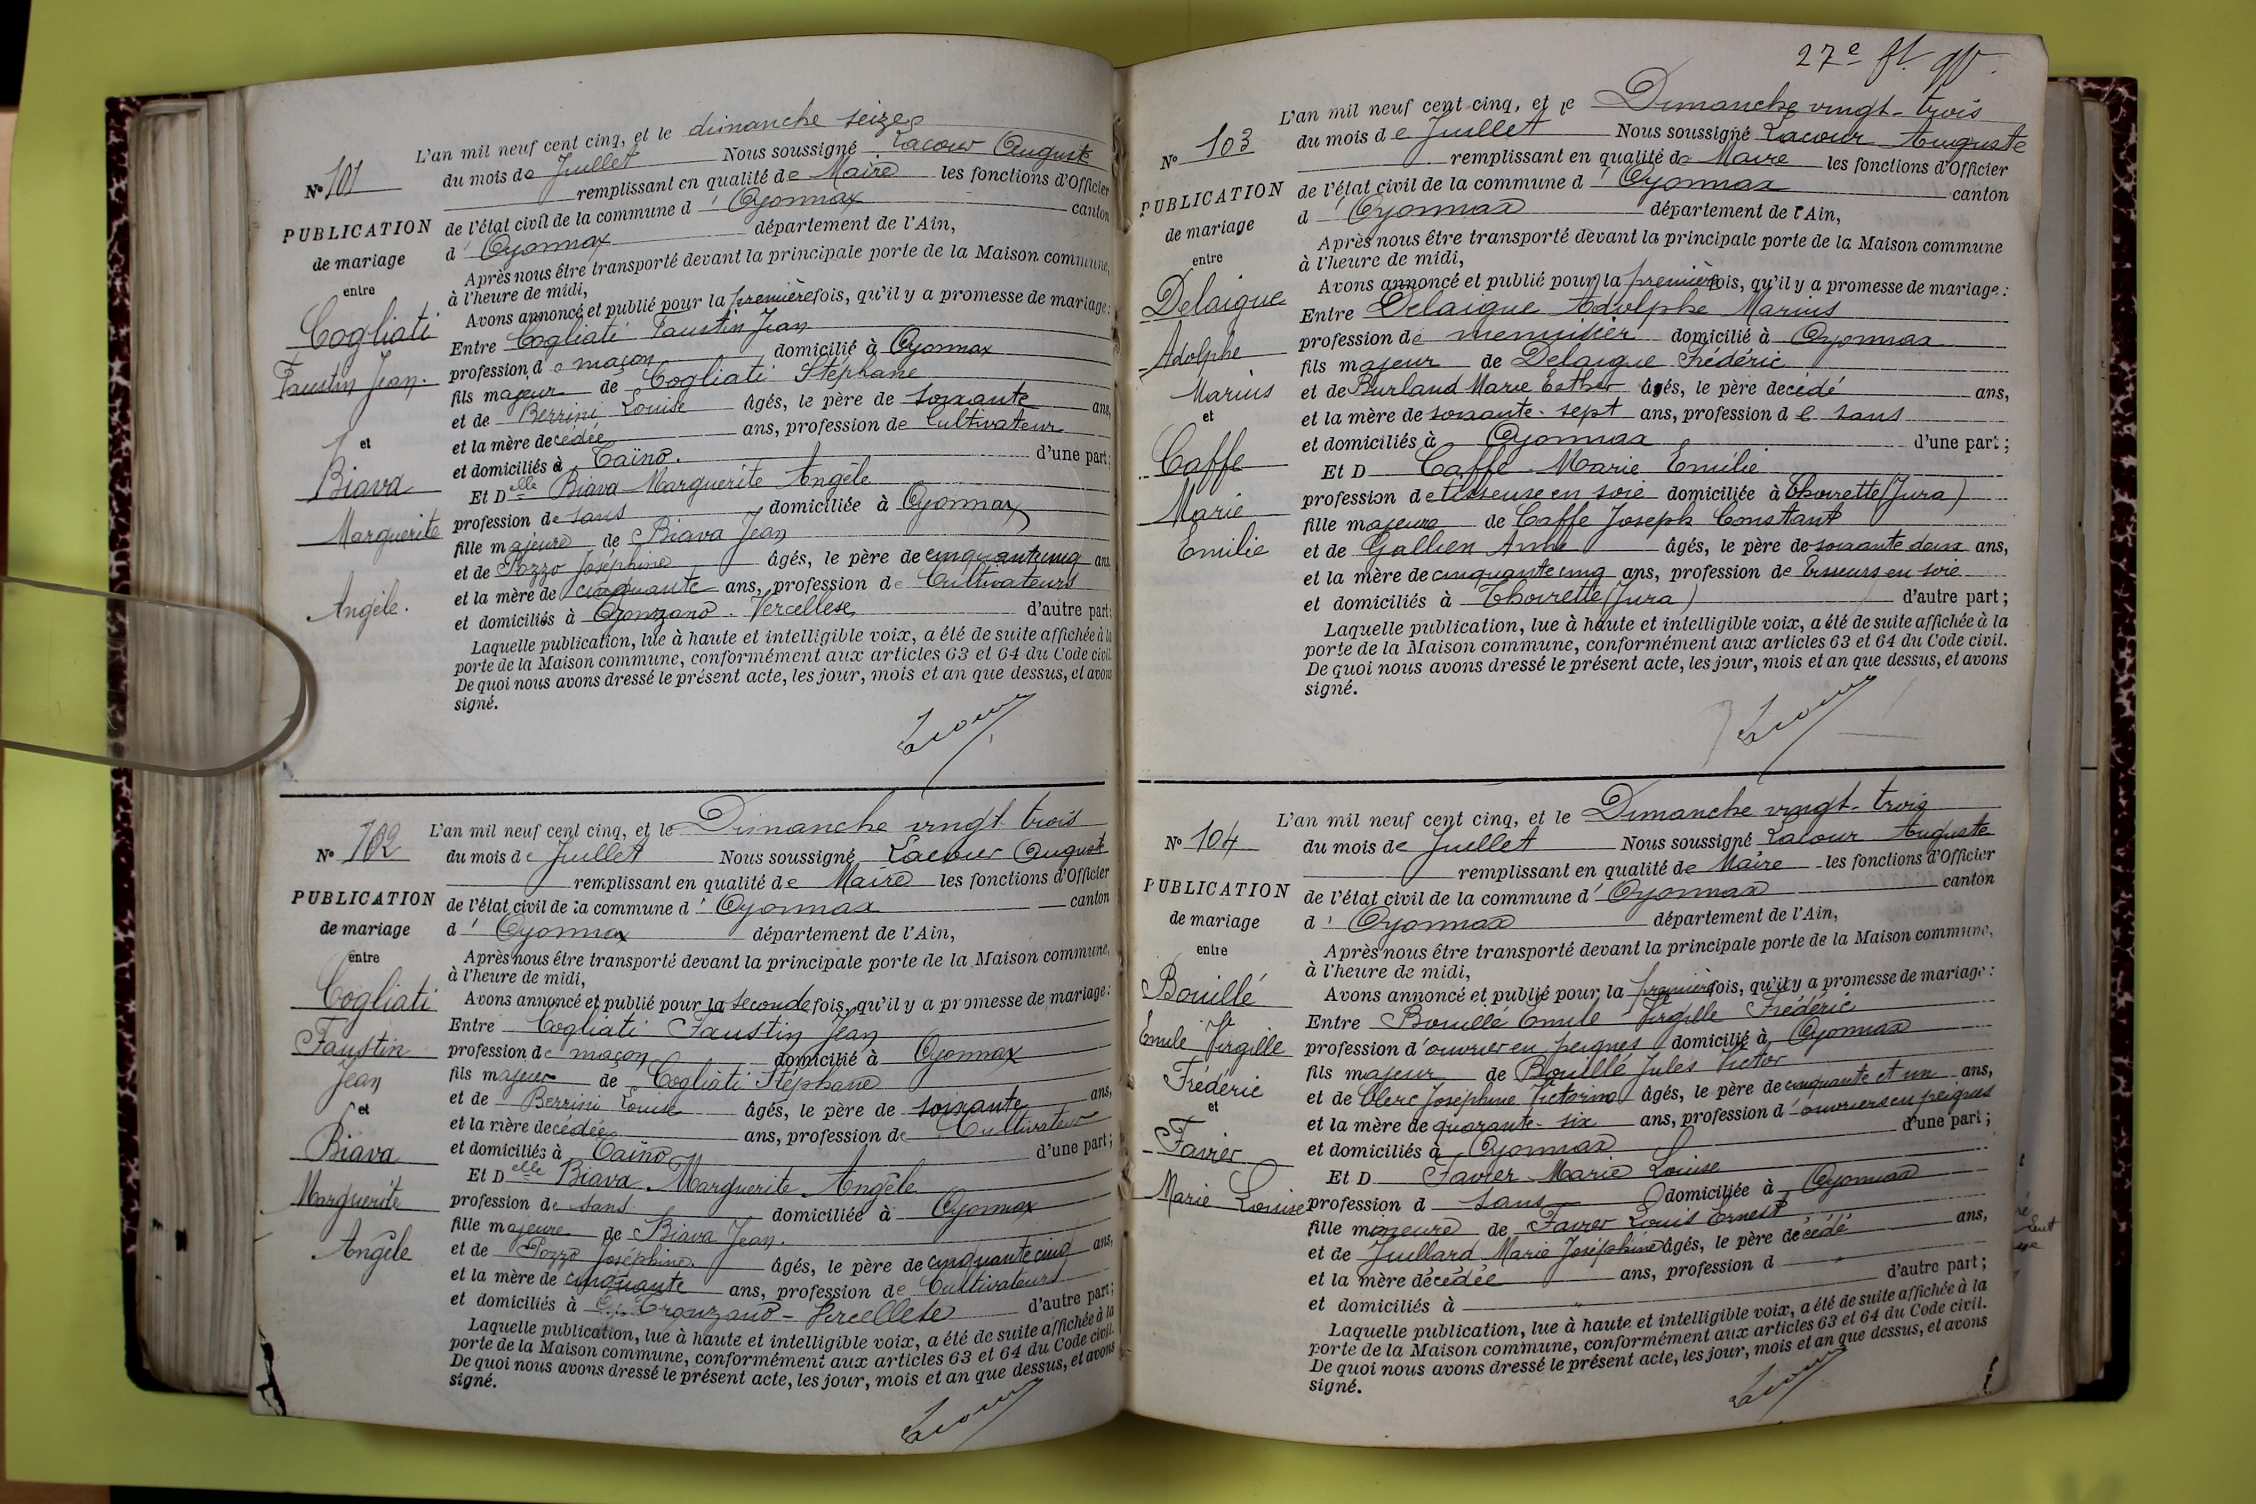 L'an mil neuf cent cinq, et le dimanche seize
N° 101
du mois de Juillet Nous soussigné Lacour Auguste
remplissant en qualité de Maire les fonctions d'Officier
PUBLICATION
de l'état civil de la commune d' Oyonnax canton
d' Oyonnax département de l'Ain,
de mariage
Après nous être transporté devant la principale porte de la Maison commune,
entre
à l'heure de midi,
Avons annoncé et publié pour la première fois, qu'il y a promesse de mariage:
Cogliati
Entre Cogliati Faustin Jean
profession de maçon domicilié à Oyonnax
Faustin Jean.
fils majeur de Cogliati Stéphane
et de Berrini Louise âgés, le père de soixante ans,
et
et la mère decédée ans, profession de Cultivateur
et domiciliés à Taïno. d'une part;
Biava
Et Delle Biava Marguerite Angèle
profession de sans domiciliée à Oyonnax
Marguerite
fille majeure de Biava Jean
et de Pozzo Joséphine âgés, le père de cinquante cinq ans
et la mère de cinquante ans, profession de Cultivateurs
Angèle.
et domiciliés à Vercellese d'autre part;
Laquelle publication, lue à haute et intelligible voix, a été de suite affichée à la
porte de la Maison commune, conformément aux articles 63 et 64 du Code civil.
De quoi nous avons dressé le présent acte, les jour, mois et an que dessus, et avons
signé.
Lacour
L'an mil neuf cent cinq, et le Dimanche vingt trois
N° 102
du mois de Juillet Nous soussigné Lacour Auguste
remplissant en qualité de Maire les fonctions d'Officier
PUBLICATION
de l'état civil de la commune d' Oyonnax canton
de mariage
d' Oyonnax département de l'Ain,
entre
Après nous être transporté devant la principale porte de la Maison commune,
à l'heure de midi,
Cogliati
Avons annoncé et publié pour la seconde fois, qu'il y a promesse de mariage:
Entre Cogliati Faustin Jean
Faustin
profession de maçon domicilié à Oyonnax
Jean
fils majeur de Cogliati Stéphane
et
et de Berrini Louise âgés, le père de soixante ans,
et la mère decédée ans, profession de Cultivateur
Biava
et domiciliés à Taïno d'une part;
Et Delle Biava Marguerite Angèle
Marguerite
profession de sans domiciliée à Oyonnax
fille majeure de Biava Jean.
Angèle
et de Pozzo Joséphine âgés, le père de cinquante cinq ans,
et la mère de cinquante ans, profession de Cultivateurs
et domiciliés à Tronzano - Vercellese d'autre part;
Laquelle publication, lue à haute et intelligible voix, a été de suite affichée à la
porte de la Maison commune, conformément aux articles 63 et 64 du Code civil.
De quoi nous avons dressé le présent acte, les jour, mois et an que dessus, et avons
signé.
Lacour
27e ft.
L'an mil neuf cent cinq, et le Dimanche vingt-trois
N° 103
du mois de Juillet Nous soussigné Lacour Auguste
remplissant en qualité de Maire les fonctions d'Officier
PUBLICATION
de l'état civil de la commune d' Oyonnax canton
de mariage
d' Oyonnax département de l'Ain,
entre
Après nous être transporté devant la principale porte de la Maison commune
à l'heure de midi,
Avons annoncé et publié pour la première fois, qu'il y a promesse de mariage:
Delaigue
Entre Delaigue Adolphe Marius
profession de menuisier domicilié à Oyonnax
Adolphe
fils majeur de Delaigue Frédéric
Marius
et de Burland Marie Esther âgés, le père decédé ans,
et
et la mère de soixante-sept ans, profession de sans
et domiciliés à Oyonnax d'une part;
Caffe
Et D Caffe Marie Emilie
profession de tisseuse en soie domiciliée à Thoirette (Jura)
Marie
fille majeure de Caffe Joseph Constant
Emilie
et de Gallien Anne âgés, le père de soixante deux ans,
et la mère de cinquante cinq ans, profession de tisseurs en soie
et domiciliés à Thoirette (Jura) d'autre part;
Laquelle publication, lue à haute et intelligible voix, a été de suite affichée à la
porte de la Maison commune, conformément aux articles 63 et 64 du Code civil.
De quoi nous avons dressé le présent acte, les jour, mois et an que dessus, et avons
signé.
Lacour
L'an mil neuf cent cinq, et le Dimanche vingt-trois
N° 104
du mois de Juillet Nous soussigné Lacour Auguste
remplissant en qualité de Maire les fonctions d'Officier
PUBLICATION
de l'état civil de la commune d' Oyonnax canton
de mariage
d' Oyonnax département de l'Ain,
entre
Après nous être transporté devant la principale porte de la Maison commune,
à l'heure de midi,
Bouillé
Avons annoncé et publié pour la première fois, qu'il y a promesse de mariage:
Entre Bouillé Emile Virgille Frédéric
Emile Virgille
profession d'ouvrier en peignes domicilié à Oyonnax
Frédéric
fils majeur de Bouillé Jules Victor
et
et de Clerc Joséphine Victorine âgés, le père de cinquante et un ans,
et la mère de quarante-six ans, profession d'ouvriers en peignes
Favier
et domiciliés à Oyonnax d'une part;
Et D Favier Marie Louise
Marie Louise
profession d sans domiciliée à Oyonnax
fille mineure de Favier Louis Ernest
et de Juillard Marie Joséphine âgés, le père décédé ans,
et la mère décédée ans, profession d
et domiciliés à d'autre part;
Laquelle publication, lue à haute et intelligible voix, a été de suite affichée à la
porte de la Maison commune, conformément aux articles 63 et 64 du Code civil.
De quoi nous avons dressé le présent acte, les jour, mois et an que dessus, et avons
signé.
Lacour